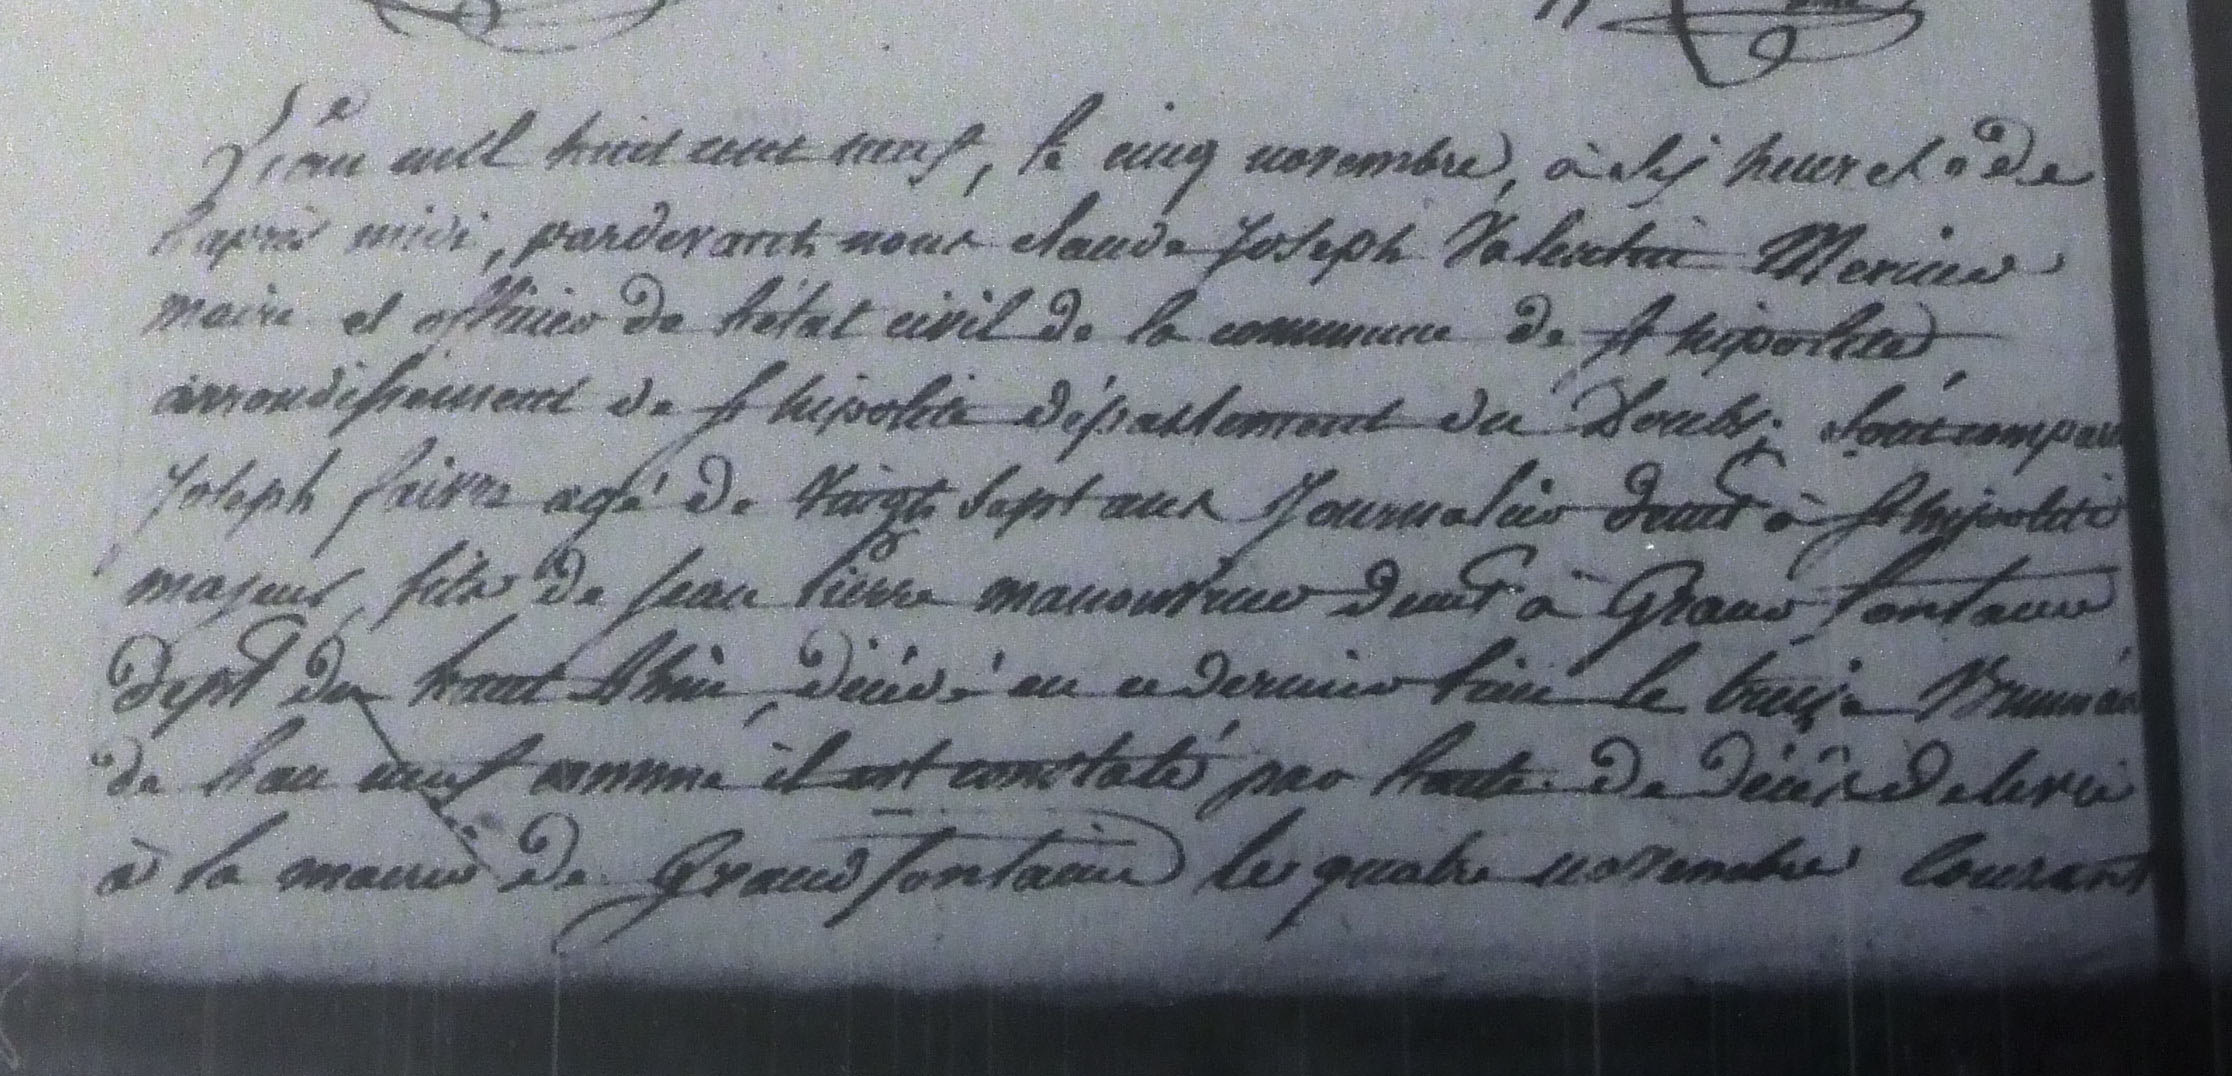 L'an mil huit cent neuf, le cinq novembre, à six heures de
l'après midi, pardevant nous claude Joseph Valentin
maire et officier de l'état civil de la commune de st hipolite
arrondissement de st hipolite département du Doubs; sont compar
Joseph faivre agé de vingt sept ans Journalier demt à st hipolite
majeur, fils de jean Pierre manouvrier demt à Grand fontaine
dept du haut Rhin, décédé en ce dernier lieu le treize Brumair
de l'an neuf comme il est constaté par l'acte de décès delivré
à la mairie de Grandfontaine le quatre novembre courant